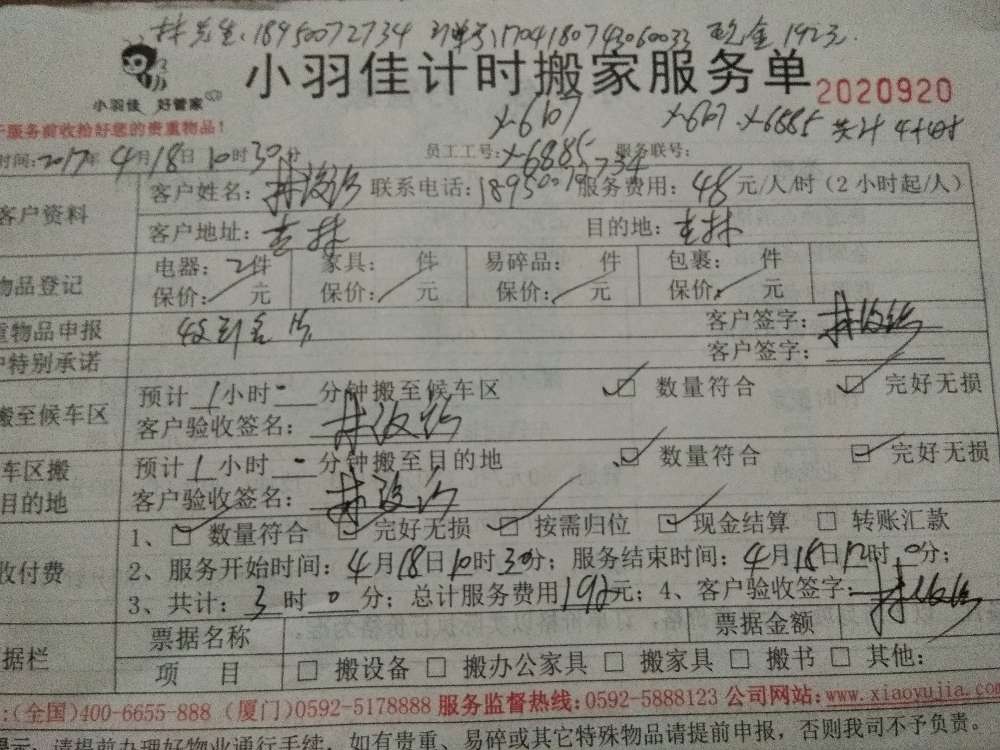 林先生:18950072734 订单号:1704180743060033 现金192元.
小羽佳 好管家
小羽佳计时搬家服务单 2020920
服务前收拾好您的贵重物品!
X-6167
X-6167、X-6885 共计4小时
时间:2017年4月18日10时30分 员工工号:X-6885 服务联号:
客户资料
客户姓名: 联系电话:18950072734 服务费用:48元/人/时(2小时起/人)
客户地址:吉林 目的地:吉林
物品登记
电器:2件 家具: 件 易碎品: 件 包裹: 件
保价: 元 保价: 元 保价: 元 保价: 元
重物品申报 客户签字:
户特别承诺 客户签字:
搬至候车区
预计1小时-分钟搬至候车区 数量符合 完好无损
客户验收签名:
车区搬
目的地
预计1小时-分钟搬至目的地 数量符合 完好无损
客户验收签名:
收付费
1、数量符合 完好无损 按需归位 现金结算 转账汇款
2、服务开始时间:4月18日10时30分;服务结束时间:4月18日12时0分;
3、共计:3时0分;总计服务费用192元;4、客户验收签字:
据栏
票据名称 票据金额
项 目 搬设备 搬办公家具 搬家具 搬书 其他:
:(全国)400-6655-888 (厦门)0592-5178888 服务监督热线:0592-5888123 公司网站:www.xiaoyujia.com
提示:请提前办理好物业通行手续,如有贵重、易碎或其它特殊物品请提前申报,否则我司不予负责。